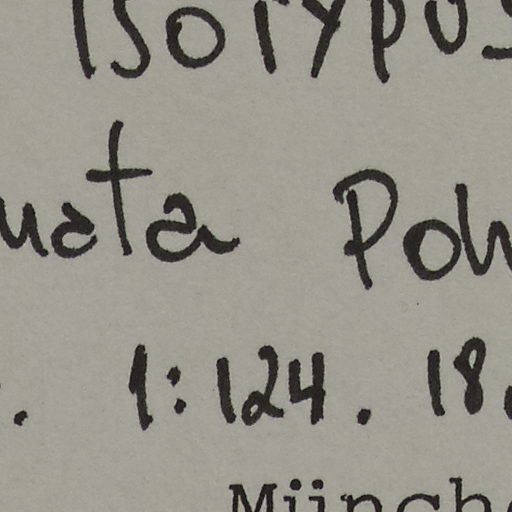 Isotypus
uata Poh
. 1:124. 18
Münch